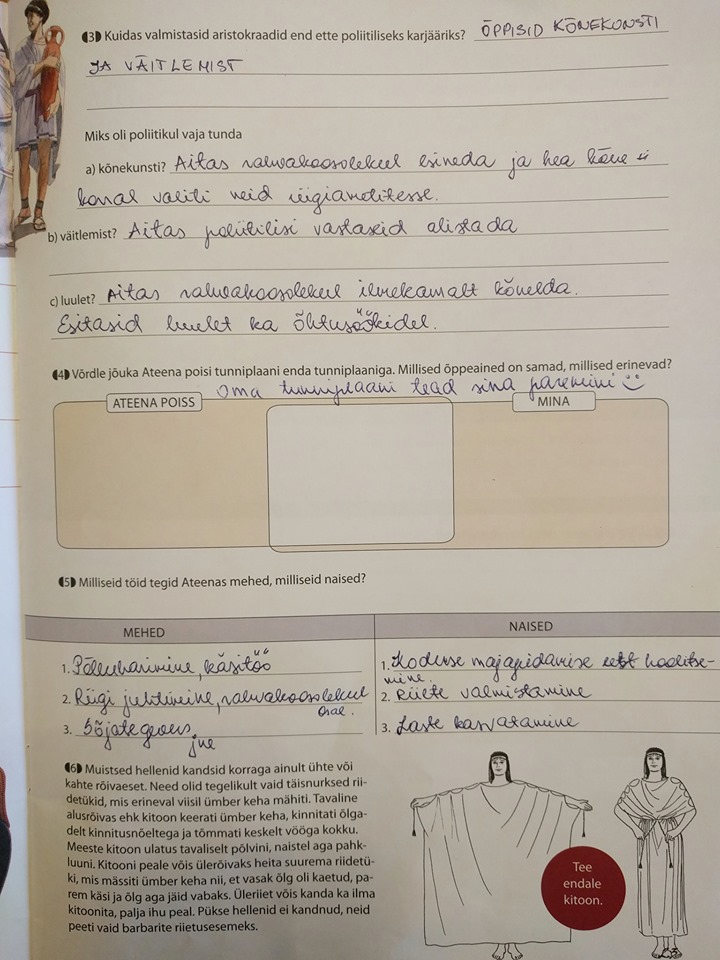 3 Kuidas valmistasid aristokraadid end ette poliitiliseks karjääriks? ÕPPISID KÕNEKUNSTI
JA VÄITLEMIST
Miks oli poliitikul vaja tunda
a) kõnekunsti? Aitas rahvakoosolekul esineda ja hea kõne
korral valiti neid riigiametitesse.
b) väitlemist? Aitas poliitilisi vastaseid alistada
c) luulet? Aitas rahvakoosolekul ilmekamalt kõnelda.
Esitasid luulet ka õhtusöökidel.
4 Võrdle jõuka Ateena poisi tunniplaani enda tunniplaaniga. Millised õppeained on samad, millised erinevad?
Oma tunniplaani tead sina paremini
ATEENA POISS
MINA
5 Milliseid töid tegid Ateenas mehed, milliseid naised?
MEHED
NAISED
1. Põlluharimine, käsitöö
2. Riigi juhtimine, rahvakoosolekul
osal.
3. Sõjategevus
jne
1. Koduse majapidamise eest hoolitse-
mine.
2. Riiete valmistamine
3. Laste kasvatamine
6 Muistsed hellenid kandsid korraga ainult ühte või
kahte rõivaeset. Need olid tegelikult vaid täisnurksed rii-
detükid, mis erineval viisil ümber keha mähiti. Tavaline
alusrõivas ehk kitoon keerati ümber keha, kinnitati õlga-
delt kinnitusnõeltega ja tõmmati keskelt vööga kokku.
Meeste kitoon ulatus tavaliselt põlvini, naistel aga pahk-
luuni. Kitooni peale võis ülerõivaks heita suurema riidetü-
ki, mis mässiti ümber keha nii, et vasak õlg oli kaetud, pa-
rem käsi ja õlg aga jäid vabaks. Üleriiet võis kanda ka ilma
kitoonita, palja ihu peal. Pükse hellenid ei kandnud, neid
peeti vaid barbarite riietusesemeks.
Tee
endale
kitoon.